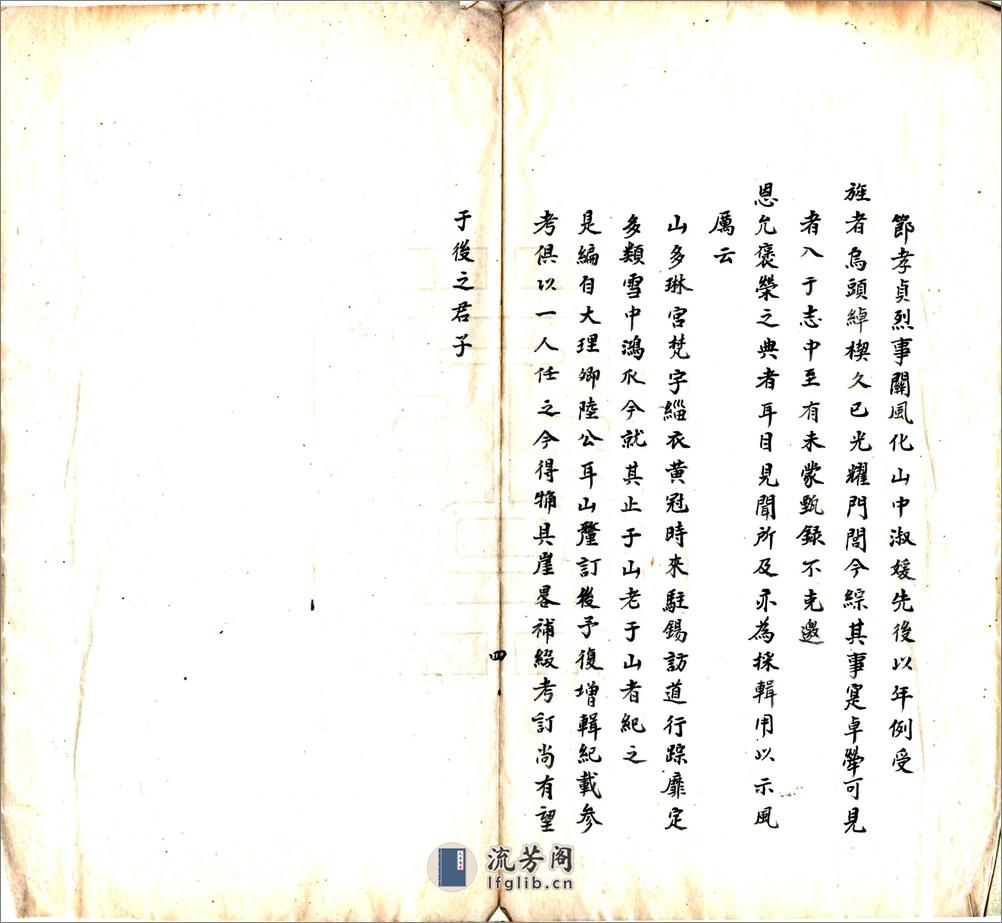 節孝貞烈事關風化山中淑媛先後以年例受
旌者烏頭綽楔久已光耀門閭今綜其事寔卓犖可見
者入于志中至有未蒙甄錄不克邀
恩允褒榮之典者耳目見聞所及亦為採輯用以示風
厲云
山多琳宮梵宇緇衣黃冠時來駐錫訪道行踪靡定
多類雪中鴻爪今就其止于山老于山者紀之
是編自大理卿陸公耳山釐訂後予復增輯紀載參
考俱以一人任之今得觕具崖畧補綴考訂尚有望
四
于後之君子
流芳阁
lfglib.cn